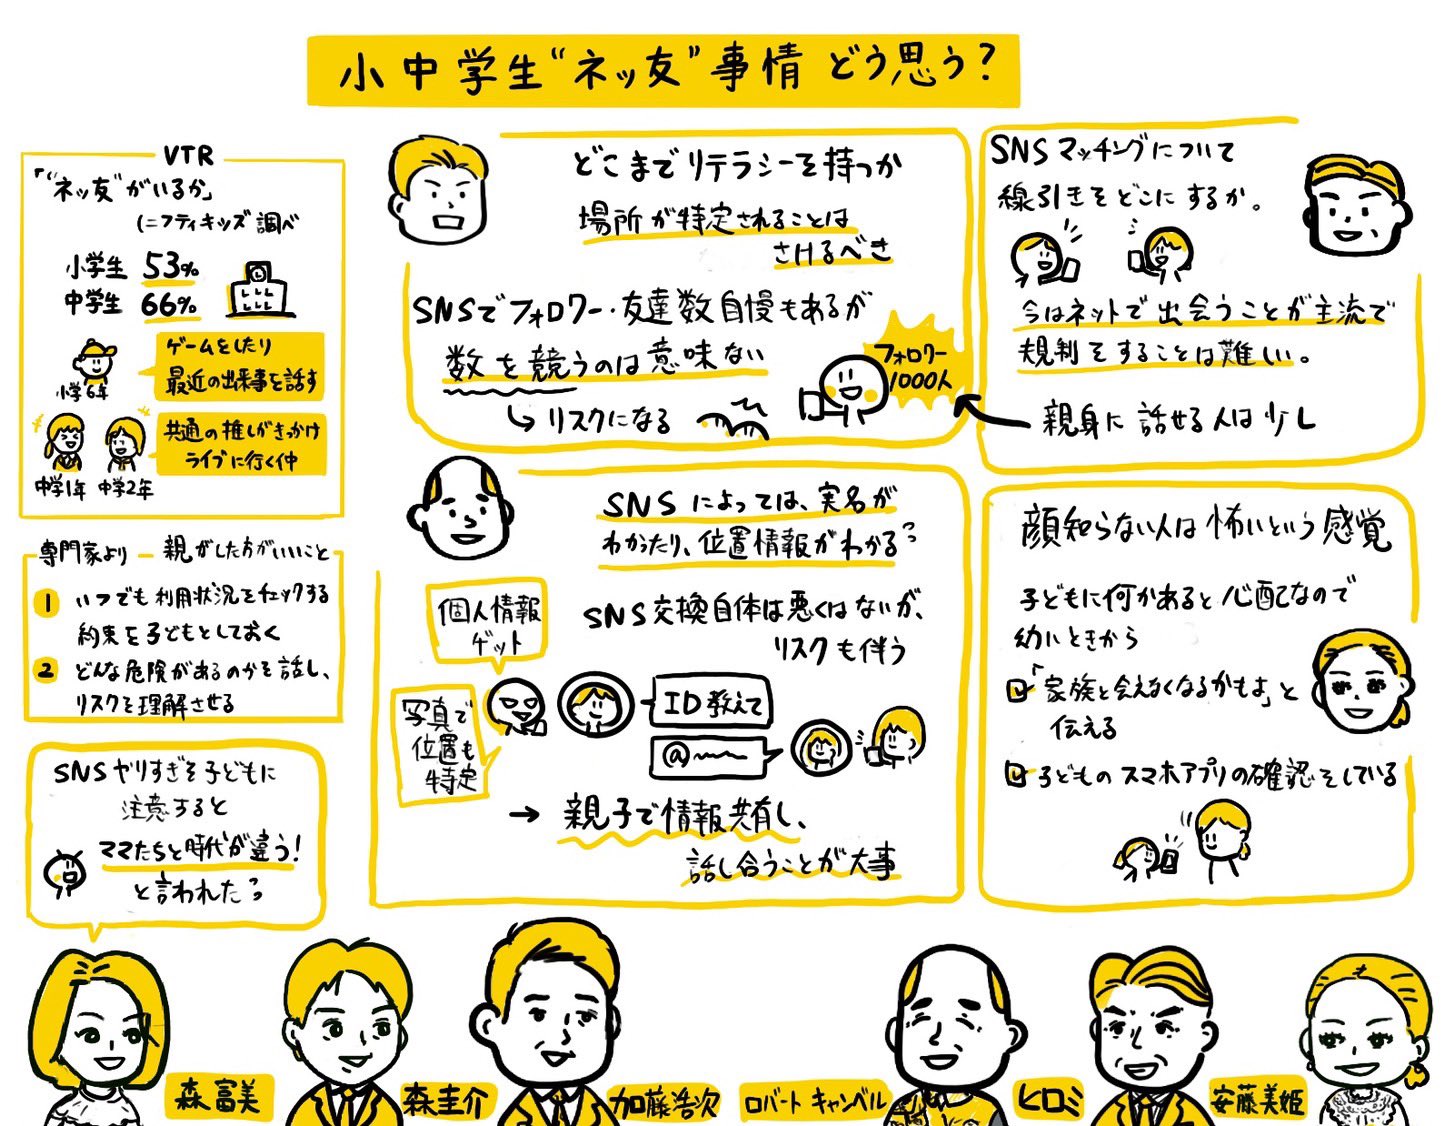 小中学生“ネッ友”事情 どう思う?
VTR
「“ネッ友”がいるか」
(ニフティキッズ調べ
小学生 53%
中学生 66%
小学6年
ゲームをしたり
最近の出来事を話す
中学1年 中学2年
共通の推しがきっかけ
ライブに行く仲
専門家より ー 親がした方がいいこと
1 いつでも利用状況をチェックする
約束を子どもとしておく
2 どんな危険があるのかを話し、
リスクを理解させる
SNSやりすぎを子どもに
注意すると
ママたちと時代が違う!
と言われたっ
どこまでリテラシーを持つか
場所が特定されることは
さけるべき
SNSでフォロワー・友達数自慢もあるが
数を競うのは意味ない
↳ リスクになる
フォロワー
1000人
SNSマッチングについて
線引きをどこにするか。
今はネットで出会うことが主流で
規制をすることは難しい。
親身に話せる人は少し
SNSによっては、実名が
わかったり、位置情報がわかるっ
SNS交換自体は悪くはないが、
リスクも伴う
個人情報
ゲット
写真で
位置も
特定
ID教えて
@
→ 親子で情報共有し、
話し合うことが大事
顔知らない人は怖いという感覚
子どもに何かあると心配なので
幼いときから
「家族と会えなくなるかもよ」と
伝える
子どものスマホアプリの確認をしている
森富美
森圭介
加藤浩次
ロバート キャンベル
ヒロミ
安藤美姫